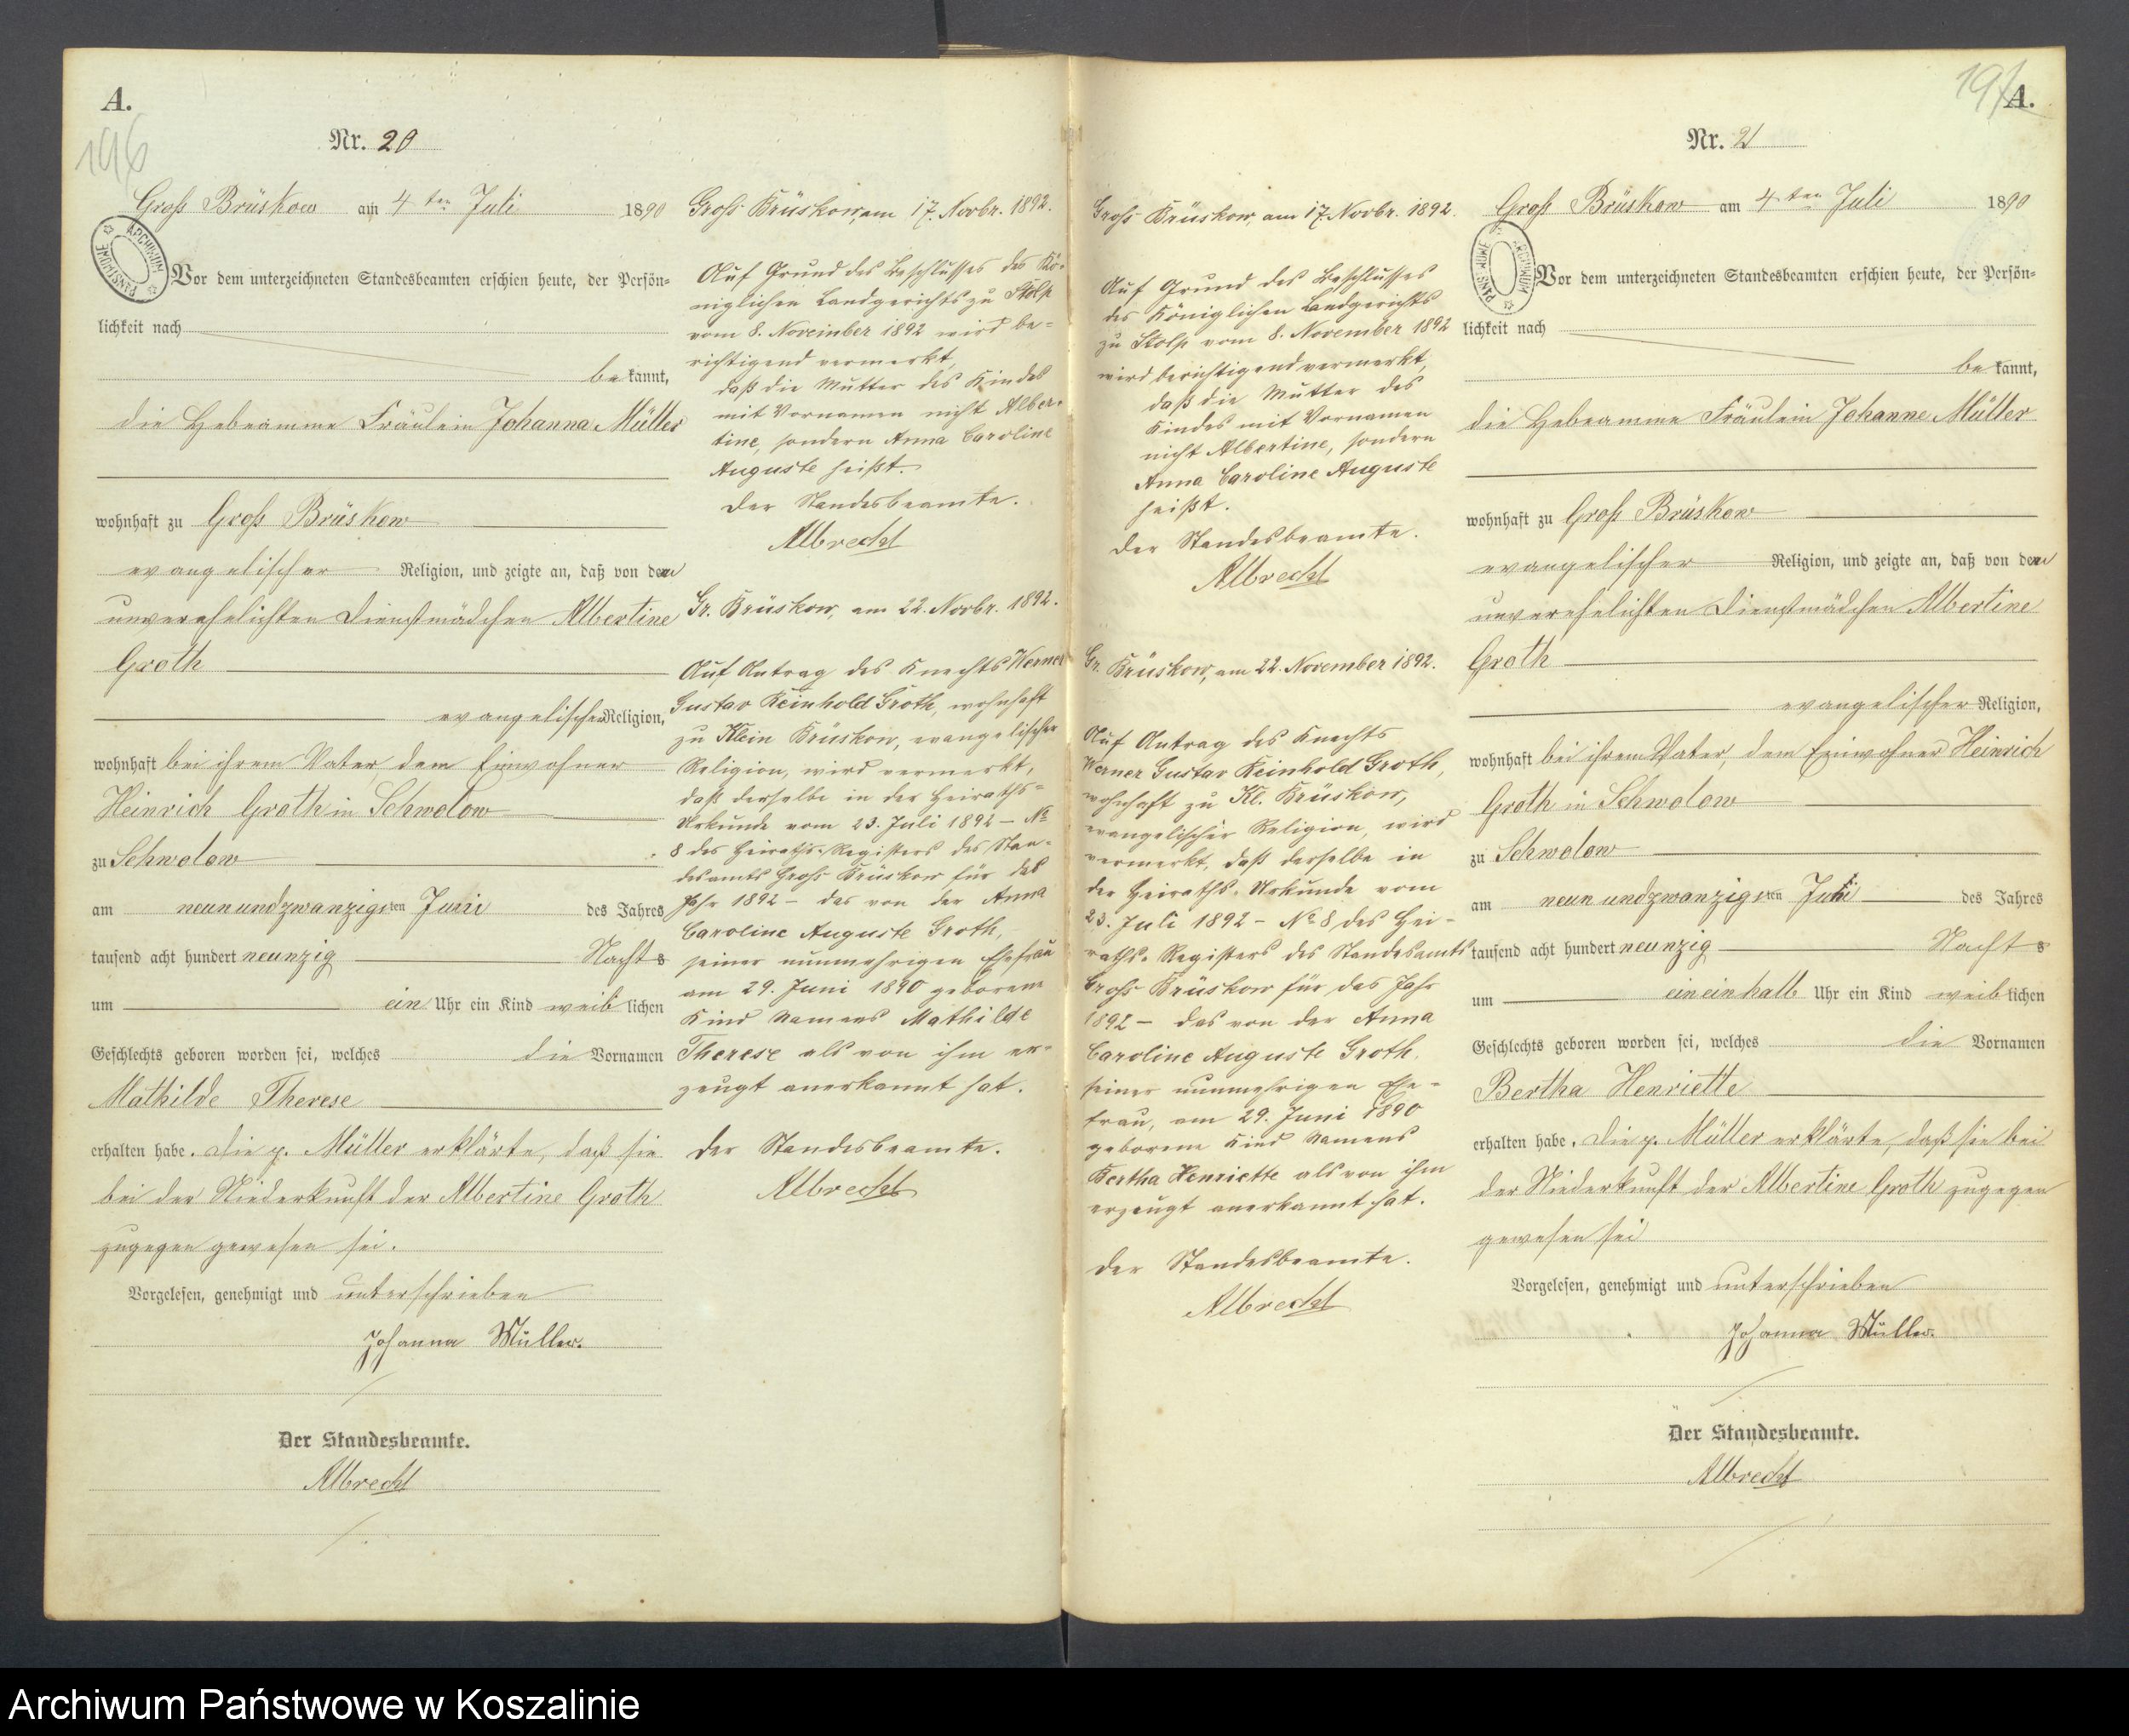 A.
196
Nr. 20
Groß Brüskow am 4ten Juli 1890
ARCHIWUM PAŃSTWOWE
Vor dem unterzeichneten Standesbeamten erschien heute, der Persön=
lichkeit nach
be kannt,
die Hebeamme Fräulein Johanna Müller
wohnhaft zu Groß Brüskow
evangelischer Religion, und zeigte an, daß von der
unverehelichten Dienstmädchen Albertine
Groth
evangelischer Religion,
wohnhaft bei ihrem Vater dem Einwohner
Heinrich Groth in Schwolow
zu Schwolow
am neunundzwanzigsten Juni des Jahres
tausend acht hundert neunzig Nachts
um ein Uhr ein Kind weiblichen
Geschlechts geboren worden sei, welches die Vornamen
Mathilde Therese
erhalten habe. Die p. Müller erklärte, daß sie
bei der Niederkunft der Albertine Groth
zugegen gewesen sei.
Vorgelesen, genehmigt und unterschrieben
Johanna Müller.
Der Standesbeamte.
Albrecht
Groß Brüskow, am 17. Novbr. 1892.
Auf Grund des Beschlusses des Kö-
niglichen Landgerichts zu Stolp
vom 8. November 1892 wird be=
richtigend vermerkt,
daß die Mutter des Kindes
mit Vornamen nicht Alber-
tine, sondern Anna Caroline
Auguste heißt.
Der Standesbeamte.
Albrecht
Gr. Brüskow, am 22. Novbr. 1892.
Auf Antrag des Knechts Werner
Gustav Reinhold Groth, wohnhaft
zu Klein Brüskow, evangelischer
Religion, wird vermerkt,
daß derselbe in der Heiraths=
Urkunde vom 23. Juli 1892 – No
8 des Heiraths-Registers des Stan-
desamts Groß Brüskow für das
Jahr 1892 – das von der Anna
Caroline Auguste Groth,
seiner nunmehrigen Ehefrau
am 29. Juni 1890 geborene
Kind Namens Mathilde
Therese als von ihm er=
zeugt anerkannt hat.
Der Standesbeamte.
Albrecht
Groß Brüskow, am 17. Novbr. 1892.
Auf Grund des Beschlusses
des Königlichen Landgerichts
zu Stolp vom 8. November 1892
wird berichtigend vermerkt,
daß die Mutter des
Kindes mit Vornamen
nicht Albertine, sondern
Anna Caroline Auguste
heißt.
Der Standesbeamte.
Albrecht
Gr. Brüskow, am 22. November 1892.
Auf Antrag des Knechts
Werner Gustav Reinhold Groth,
wohnhaft zu Kl. Brüskow,
evangelischer Religion, wird
vermerkt, daß derselbe in
der Heiraths-Urkunde vom
23. Juli 1892 – No 8 des Hei-
raths-Registers des Standesamts
Groß Brüskow für das Jahr
1892 – das von der Anna
Caroline Auguste Groth,
seiner nunmehrigen Ehe=
frau, am 29. Juni 1890
geborene Kind Namens
Bertha Henriette als von ihm
erzeugt anerkannt hat.
Der Standesbeamte.
Albrecht
197
A.
Nr. 21
Groß Brüskow am 4ten Juli 1890
ARCHIWUM PAŃSTWOWE
Vor dem unterzeichneten Standesbeamten erschien heute, der Persön=
lichkeit nach
be kannt,
die Hebeamme Fräulein Johanne Müller
wohnhaft zu Groß Brüskow
evangelischer Religion, und zeigte an, daß von der
unverehelichten Dienstmädchen Albertine
Groth
evangelischer Religion,
wohnhaft bei ihrem Vater, dem Einwohner Heinrich
Groth in Schwolow
zu Schwolow
am neunundzwanzigsten Juni des Jahres
tausend acht hundert neunzig Nachts
um ein einhalb Uhr ein Kind weiblichen
Geschlechts geboren worden sei, welches die Vornamen
Bertha Henriette
erhalten habe. Die p. Müller erklärte, daß sie bei
der Niederkunft der Albertine Groth zugegen
gewesen sei
Vorgelesen, genehmigt und unterschrieben
Johanna Müller.
Der Standesbeamte.
Albrecht
Archiwum Państwowe w Koszalinie